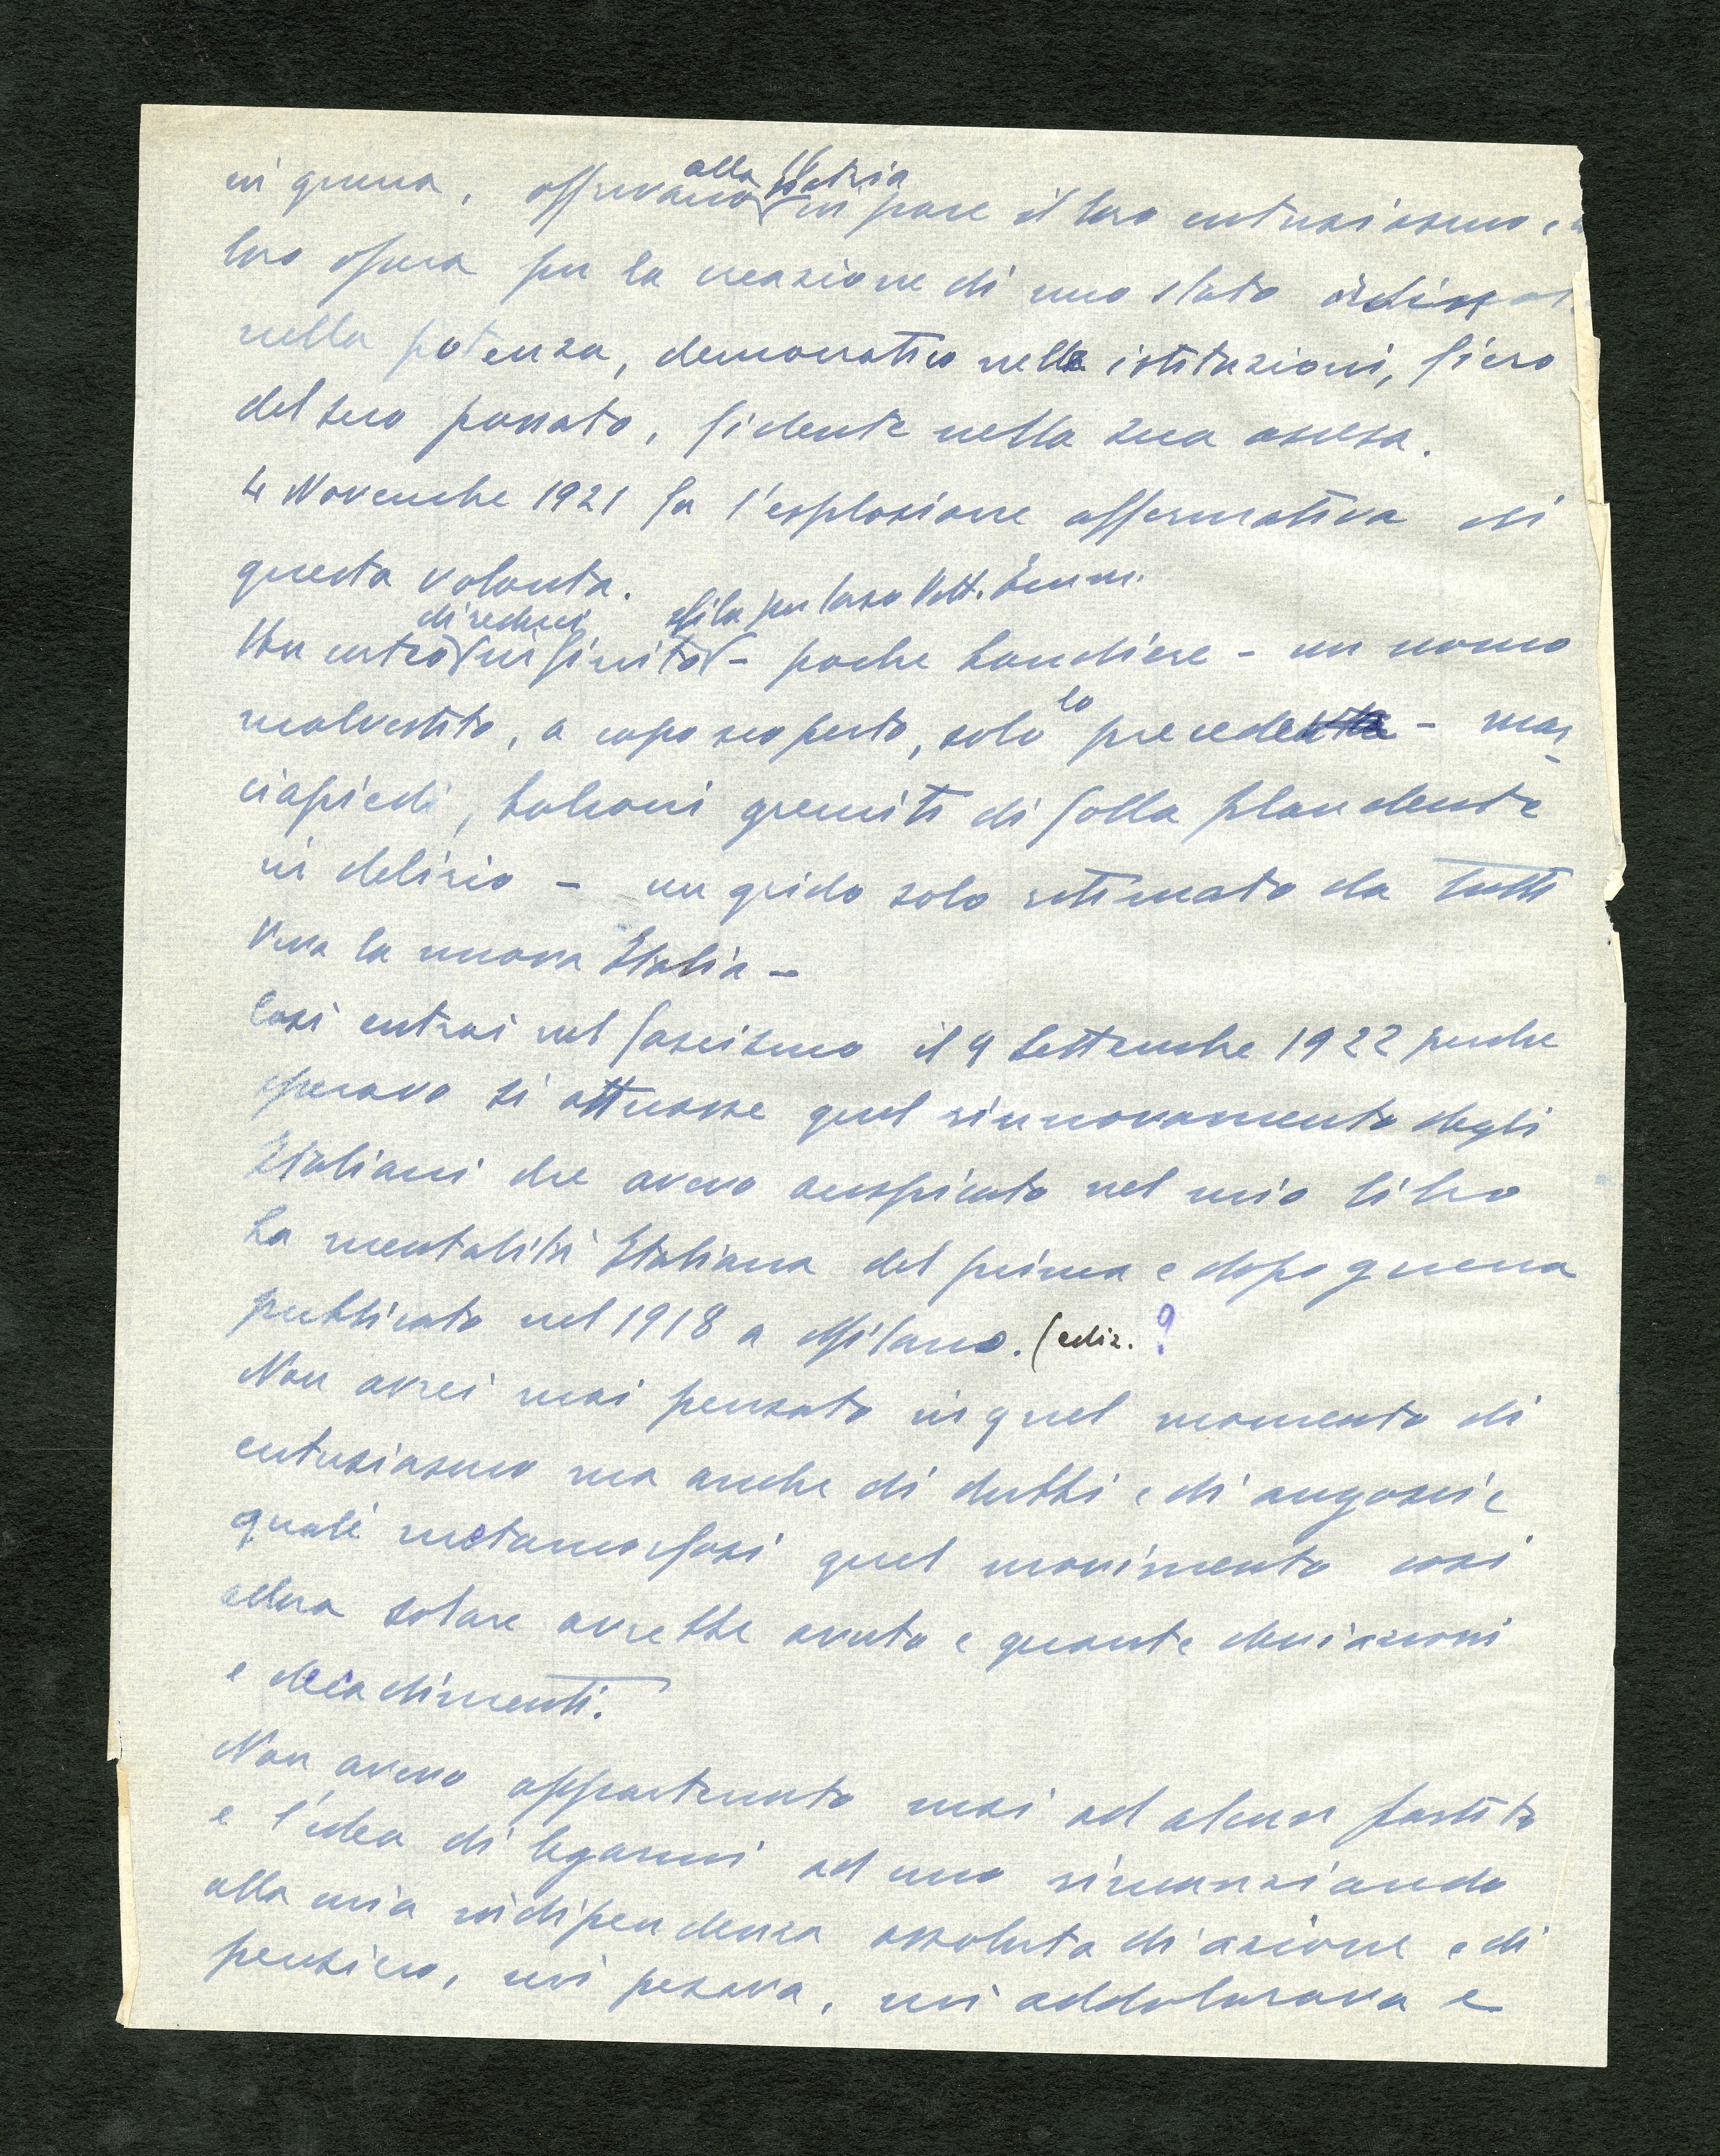 in guerra, offrivano alla Patria in pace il loro entusiasmo e
loro opera per la creazione di uno stato
nella potenza, democratico nelle istituzioni, fiero
del suo passato, fidente nella sua ascesa.
4 Novembre 1921 fu l'esplosione affermativa di
questa volontà.
Un corteo di reduci infinito sfila per largo Vitt. Emm. - poche bandiere - un uomo
malvestito, a capo scoperto, solo lo precede - mar-
ciapiedi, balconi gremiti di folla plaudente
in delirio - un grido solo ritmato da tutti
Viva la nuova Italia -
Così entrai nel fascismo il 9 Settembre 1922 perche
speravo si attuasse quel rinnovamento degli
Italiani che avevo auspicato nel mio libro
La mentalità Italiana del prima e dopo guerra
pubblicato nel 1918 a Milano. (ediz. ?
Non avrei mai pensato in quel momento di
entusiasmo ma anche di dubbi e di angoscie
quali metamorfosi quel movimento così
allora solare avrebbe avuto e quante deviazioni
e decadimenti.
Non avevo appartenuto mai ad alcun partito
e l'idea di legarmi ad uno rinunziando
alla mia indipendenza assoluta di azione e di
pensiero, mi pesava, mi addolorava e